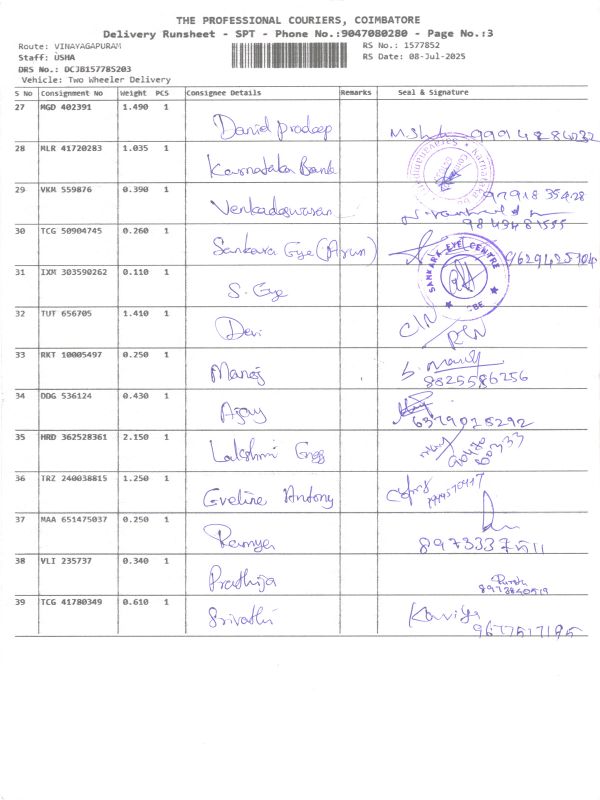 THE PROFESSIONAL COURIERS, COIMBATORE
Delivery Runsheet - SPT - Phone No.:9047080280 - Page No.:3
Route: VINAYAGAPURAM RS No.: 1577852
Staff: USHA RS Date: 08-Jul-2025
DRS No.: DCJB15778S203
Vehicle: Two Wheeler Delivery
S No Consignment No Weight PCS Consignee Details Remarks Seal & Signature
27 MGD 402391 1.490 1
Daniel pradeep
28 MLR 41720283 1.035 1
Karnataka Bank
29 VKM 559876 0.390 1
Venkadeswaran
30 TCG 50904745 0.260 1
Sankara Eye (Arun) 9629425104
31 IXM 303590262 0.110 1
S. Eye
SANKARA EYE CENTRE
CBE
32 TUT 656705 1.410 1
Devi
33 RKT 10005497 0.250 1
Manoj
8825586256
34 DDG 536124 0.430 1
Ajay 6379025292
35 HRD 362528361 2.150 1
Lakshmi Engg
36 TRZ 240038815 1.250 1
Eveline Antony
37 MAA 651475037 0.250 1
Ramya
38 VLI 235737 0.340 1
Prathija
39 TCG 41780349 0.610 1
Srivathi Kaviya